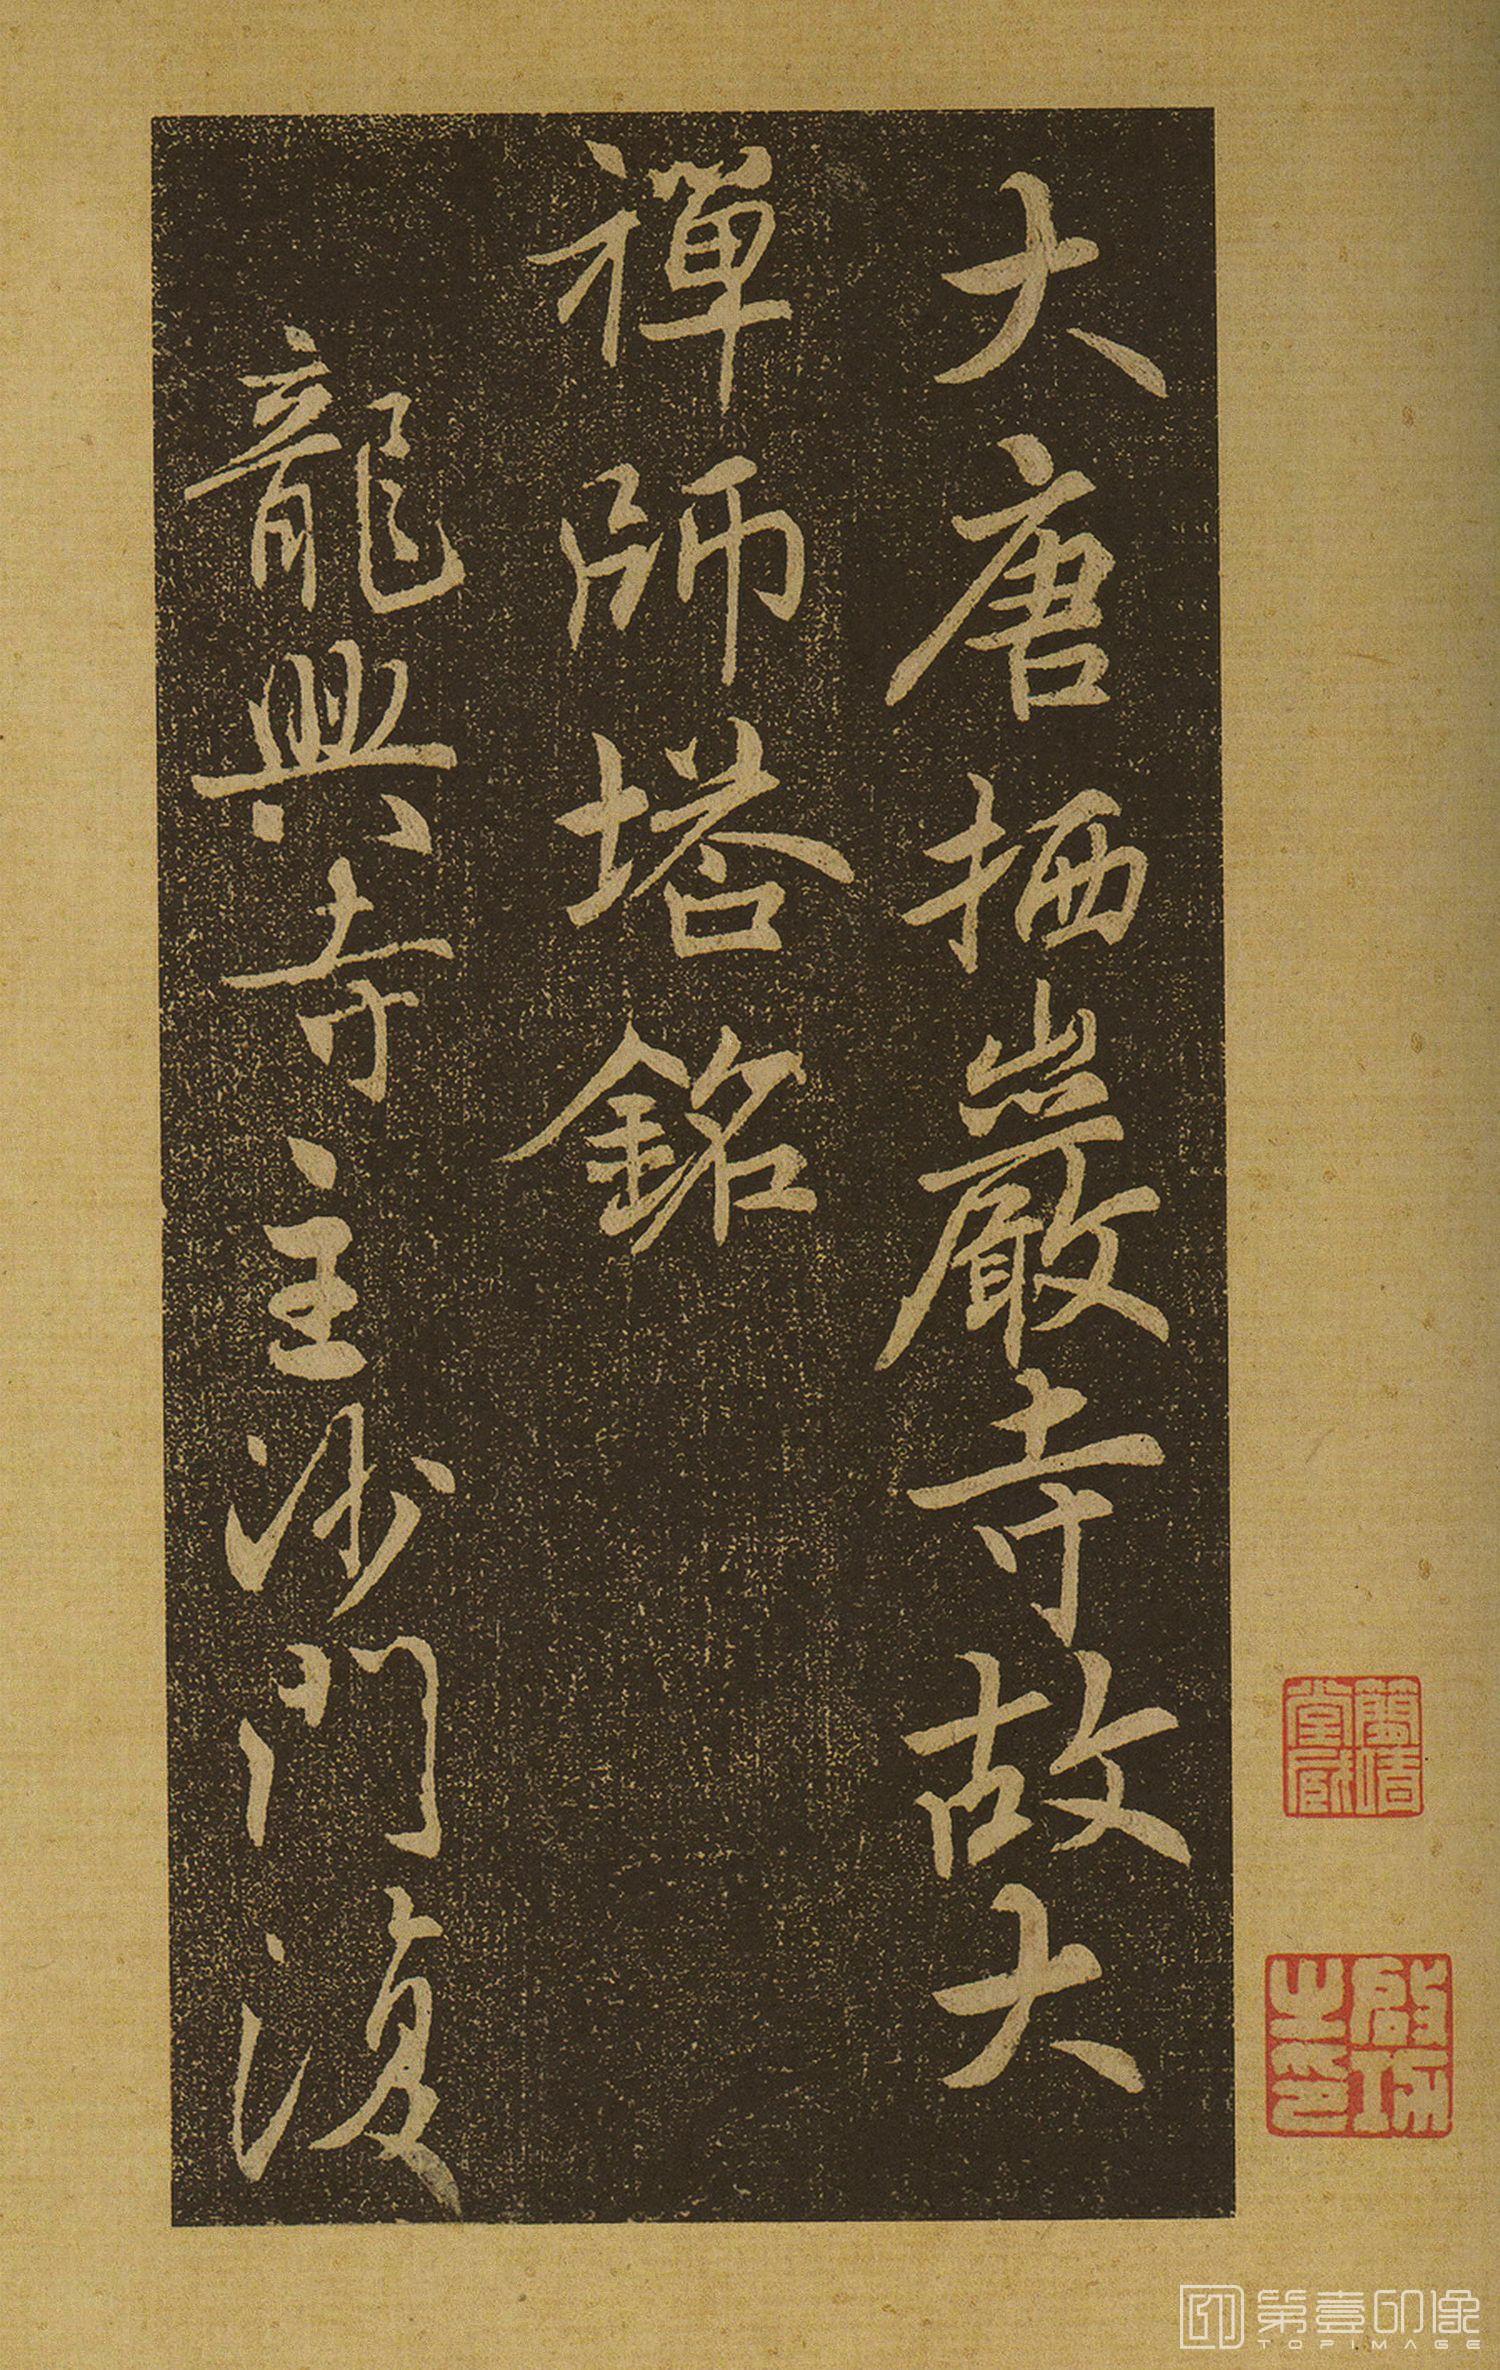 大唐栖巖寺故大
禪師塔銘
龍興寺主沙門復
啟功之印
第壹印像
TOPIMAGE